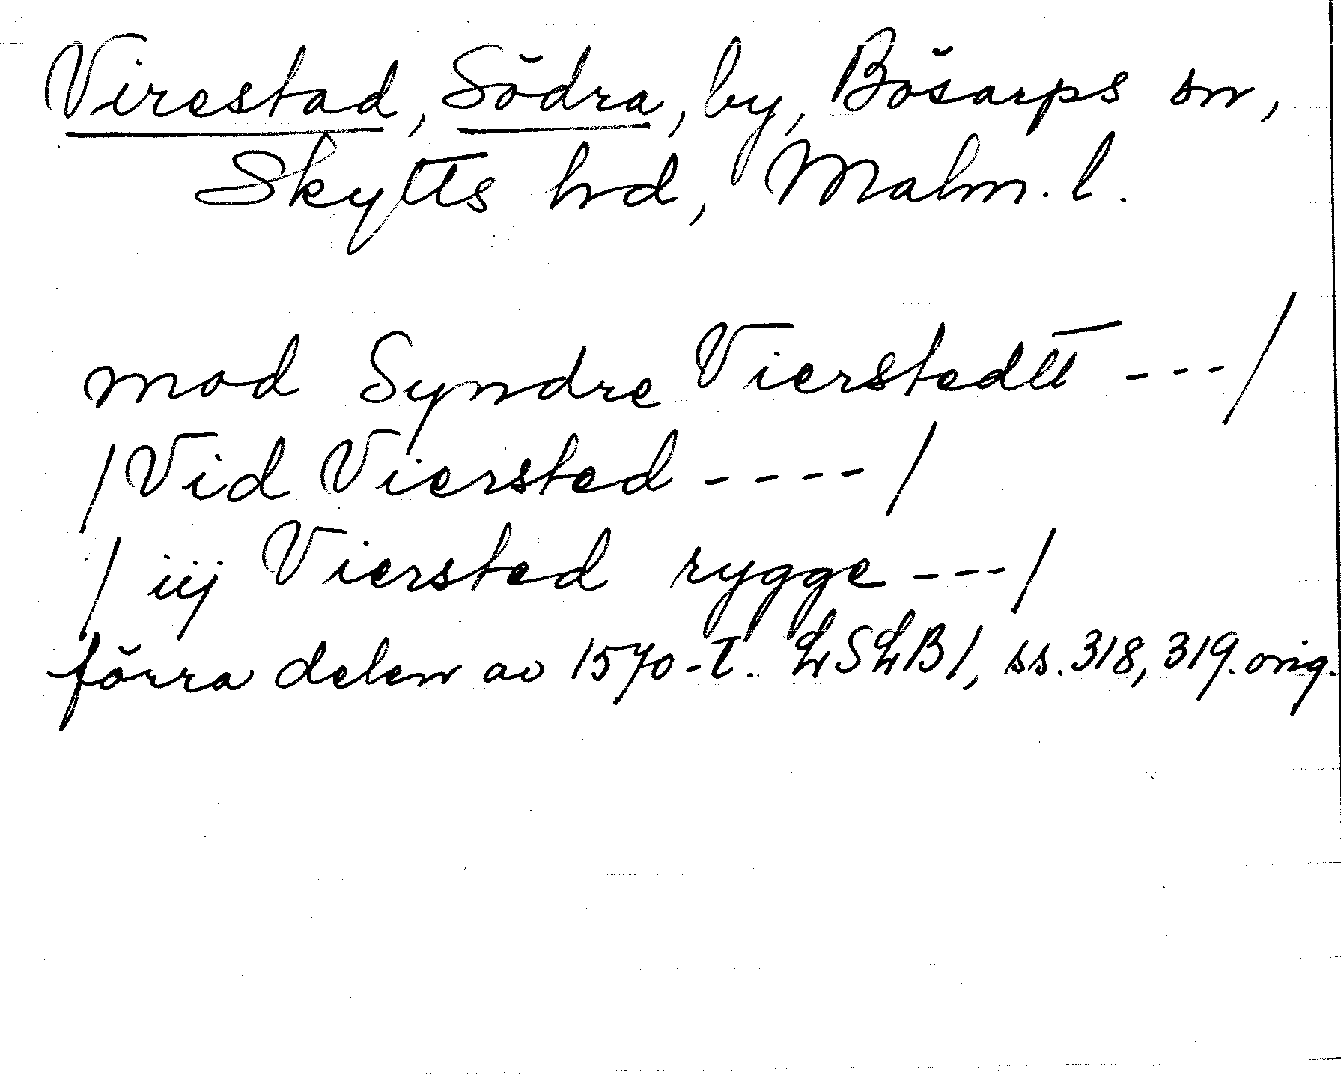 Virestad, Södra, by, Bösarps sn,
Skytts hrd, Malm. l.
mod Syndre Vierstedtt ---/
/Vid Viersted ----/
/ iij Viersted rygge ---/
förra delen av 1570-t. LSLB1, ss. 318, 319. orig.